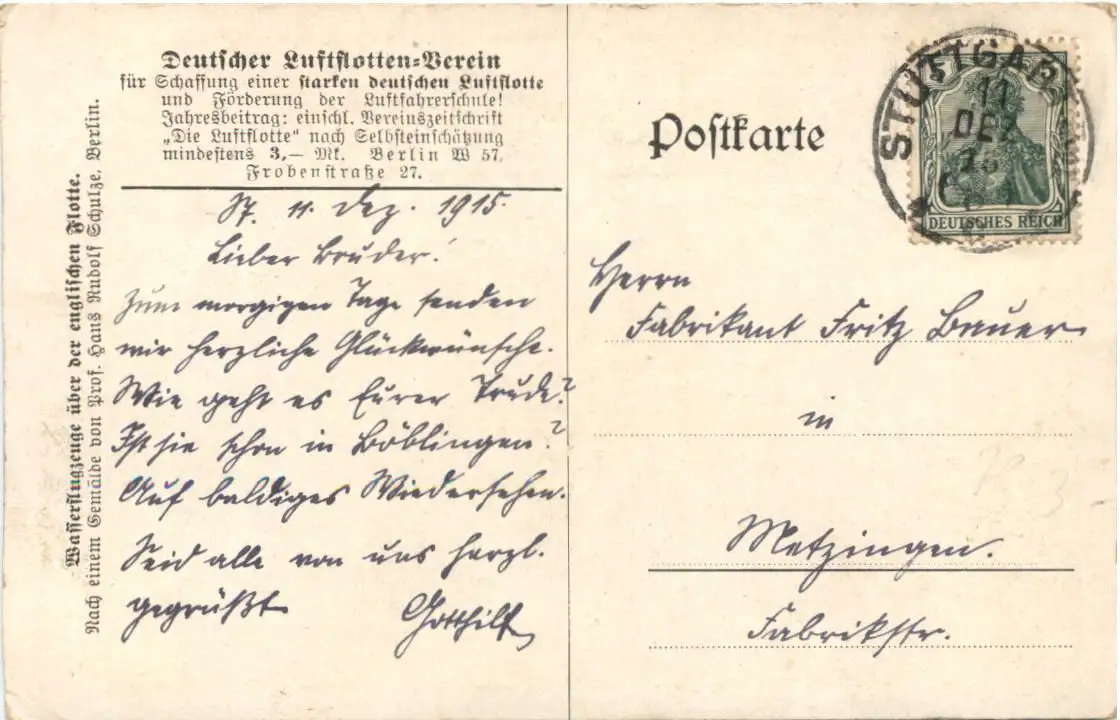 Deutscher Luftflotten=Verein
für Schaffung einer starken deutschen Luftflotte
und Förderung der Luftfahrerschule!
Jahresbeitrag: einschl. Vereinszeitschrift
„Die Luftflotte“ nach Selbsteinschätzung
mindestens 3,— Mk. Berlin W 57,
Frobenstraße 27.
Wasserflugzeuge über der englischen Flotte.
Nach einem Gemälde von Prof. Hans Rudolf Schulze, Berlin.
St. 11. Dez. 1915.
Lieber Bruder!
Zum morgigen Tage senden
wir herzliche Glückwünsche.
Wie geht es Eurer Trude?
Ist sie schon in Böblingen?
Auf baldiges Wiedersehen.
Seid alle von uns herzl.
gegrüßt
Gotthilf
Postkarte
STUTTGART
11
DEZ
15
DEUTSCHES REICH
Herrn
Fabrikant Fritz Bauer
in
Metzingen.
Fabrikstr.